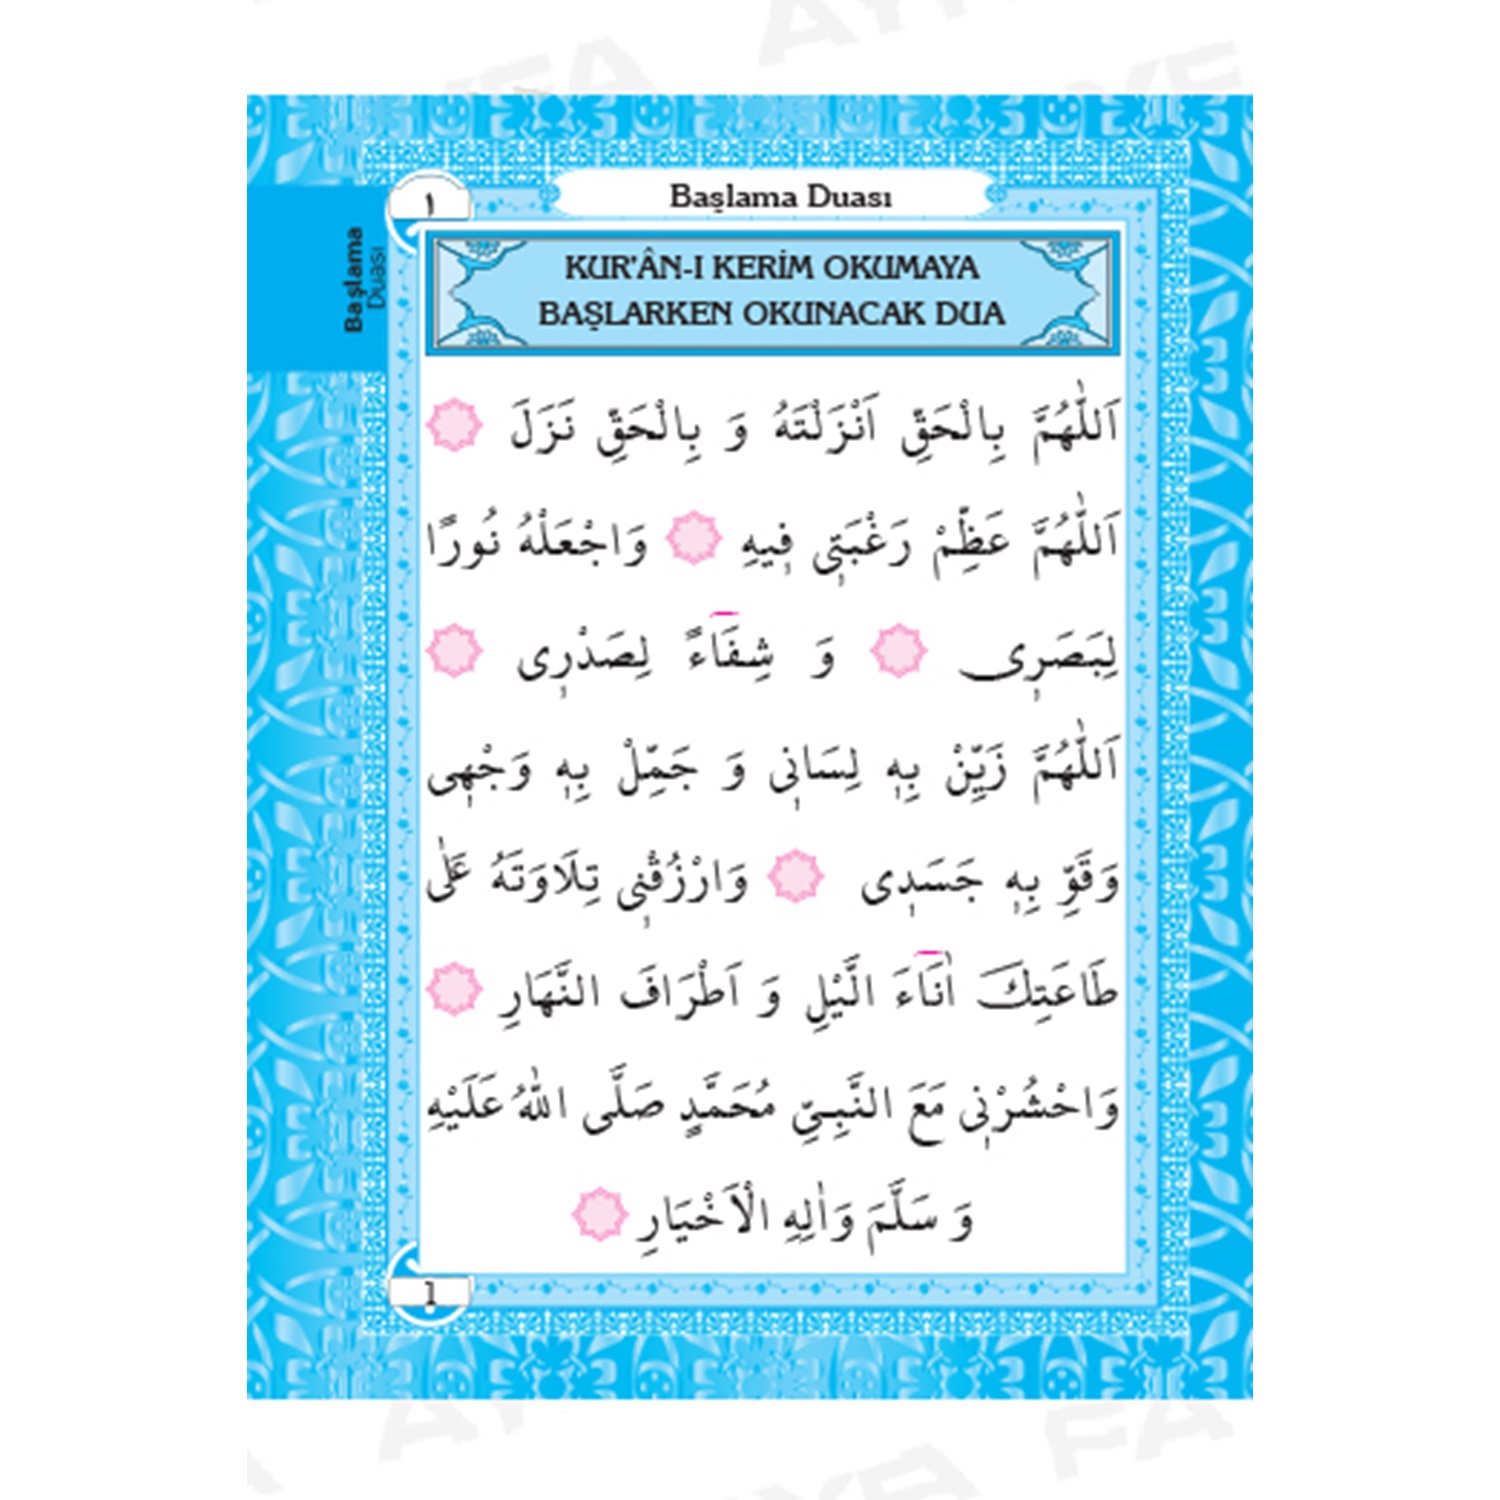 AYFA
AYFA
AYFE
Başlama Duası
١
Başlama
Duası
KUR'ÂN-I KERİM OKUMAYA
BAŞLARKEN OKUNACAK DUA
اَللّٰهُمَّ بِالْحَقِّ اَنْزَلْتَهُ وَ بِالْحَقِّ نَزَلَ
اَللّٰهُمَّ عَظِّمْ رَغْبَتٖى فٖيهِ وَاجْعَلْهُ نُورًا
لِبَصَرٖى وَ شِفَٓاءً لِصَدْرٖى
اَللّٰهُمَّ زَيِّنْ بِهٖ لِسَانٖى وَ جَمِّلْ بِهٖ وَجْهٖى
وَقَوِّ بِهٖ جَسَدٖى وَارْزُقْنٖى تِلَاوَتَهُ عَلٰى
طَاعَتِكَ اٰنَٓاءَ الَّيْلِ وَ اَطْرَافَ النَّهَارِ
وَاحْشُرْنٖى مَعَ النَّبِىِّ مُحَمَّدٍ صَلَّى اللّٰهُ عَلَيْهِ
وَ سَلَّمَ وَاٰلِهِ الْاَخْيَارِ
1